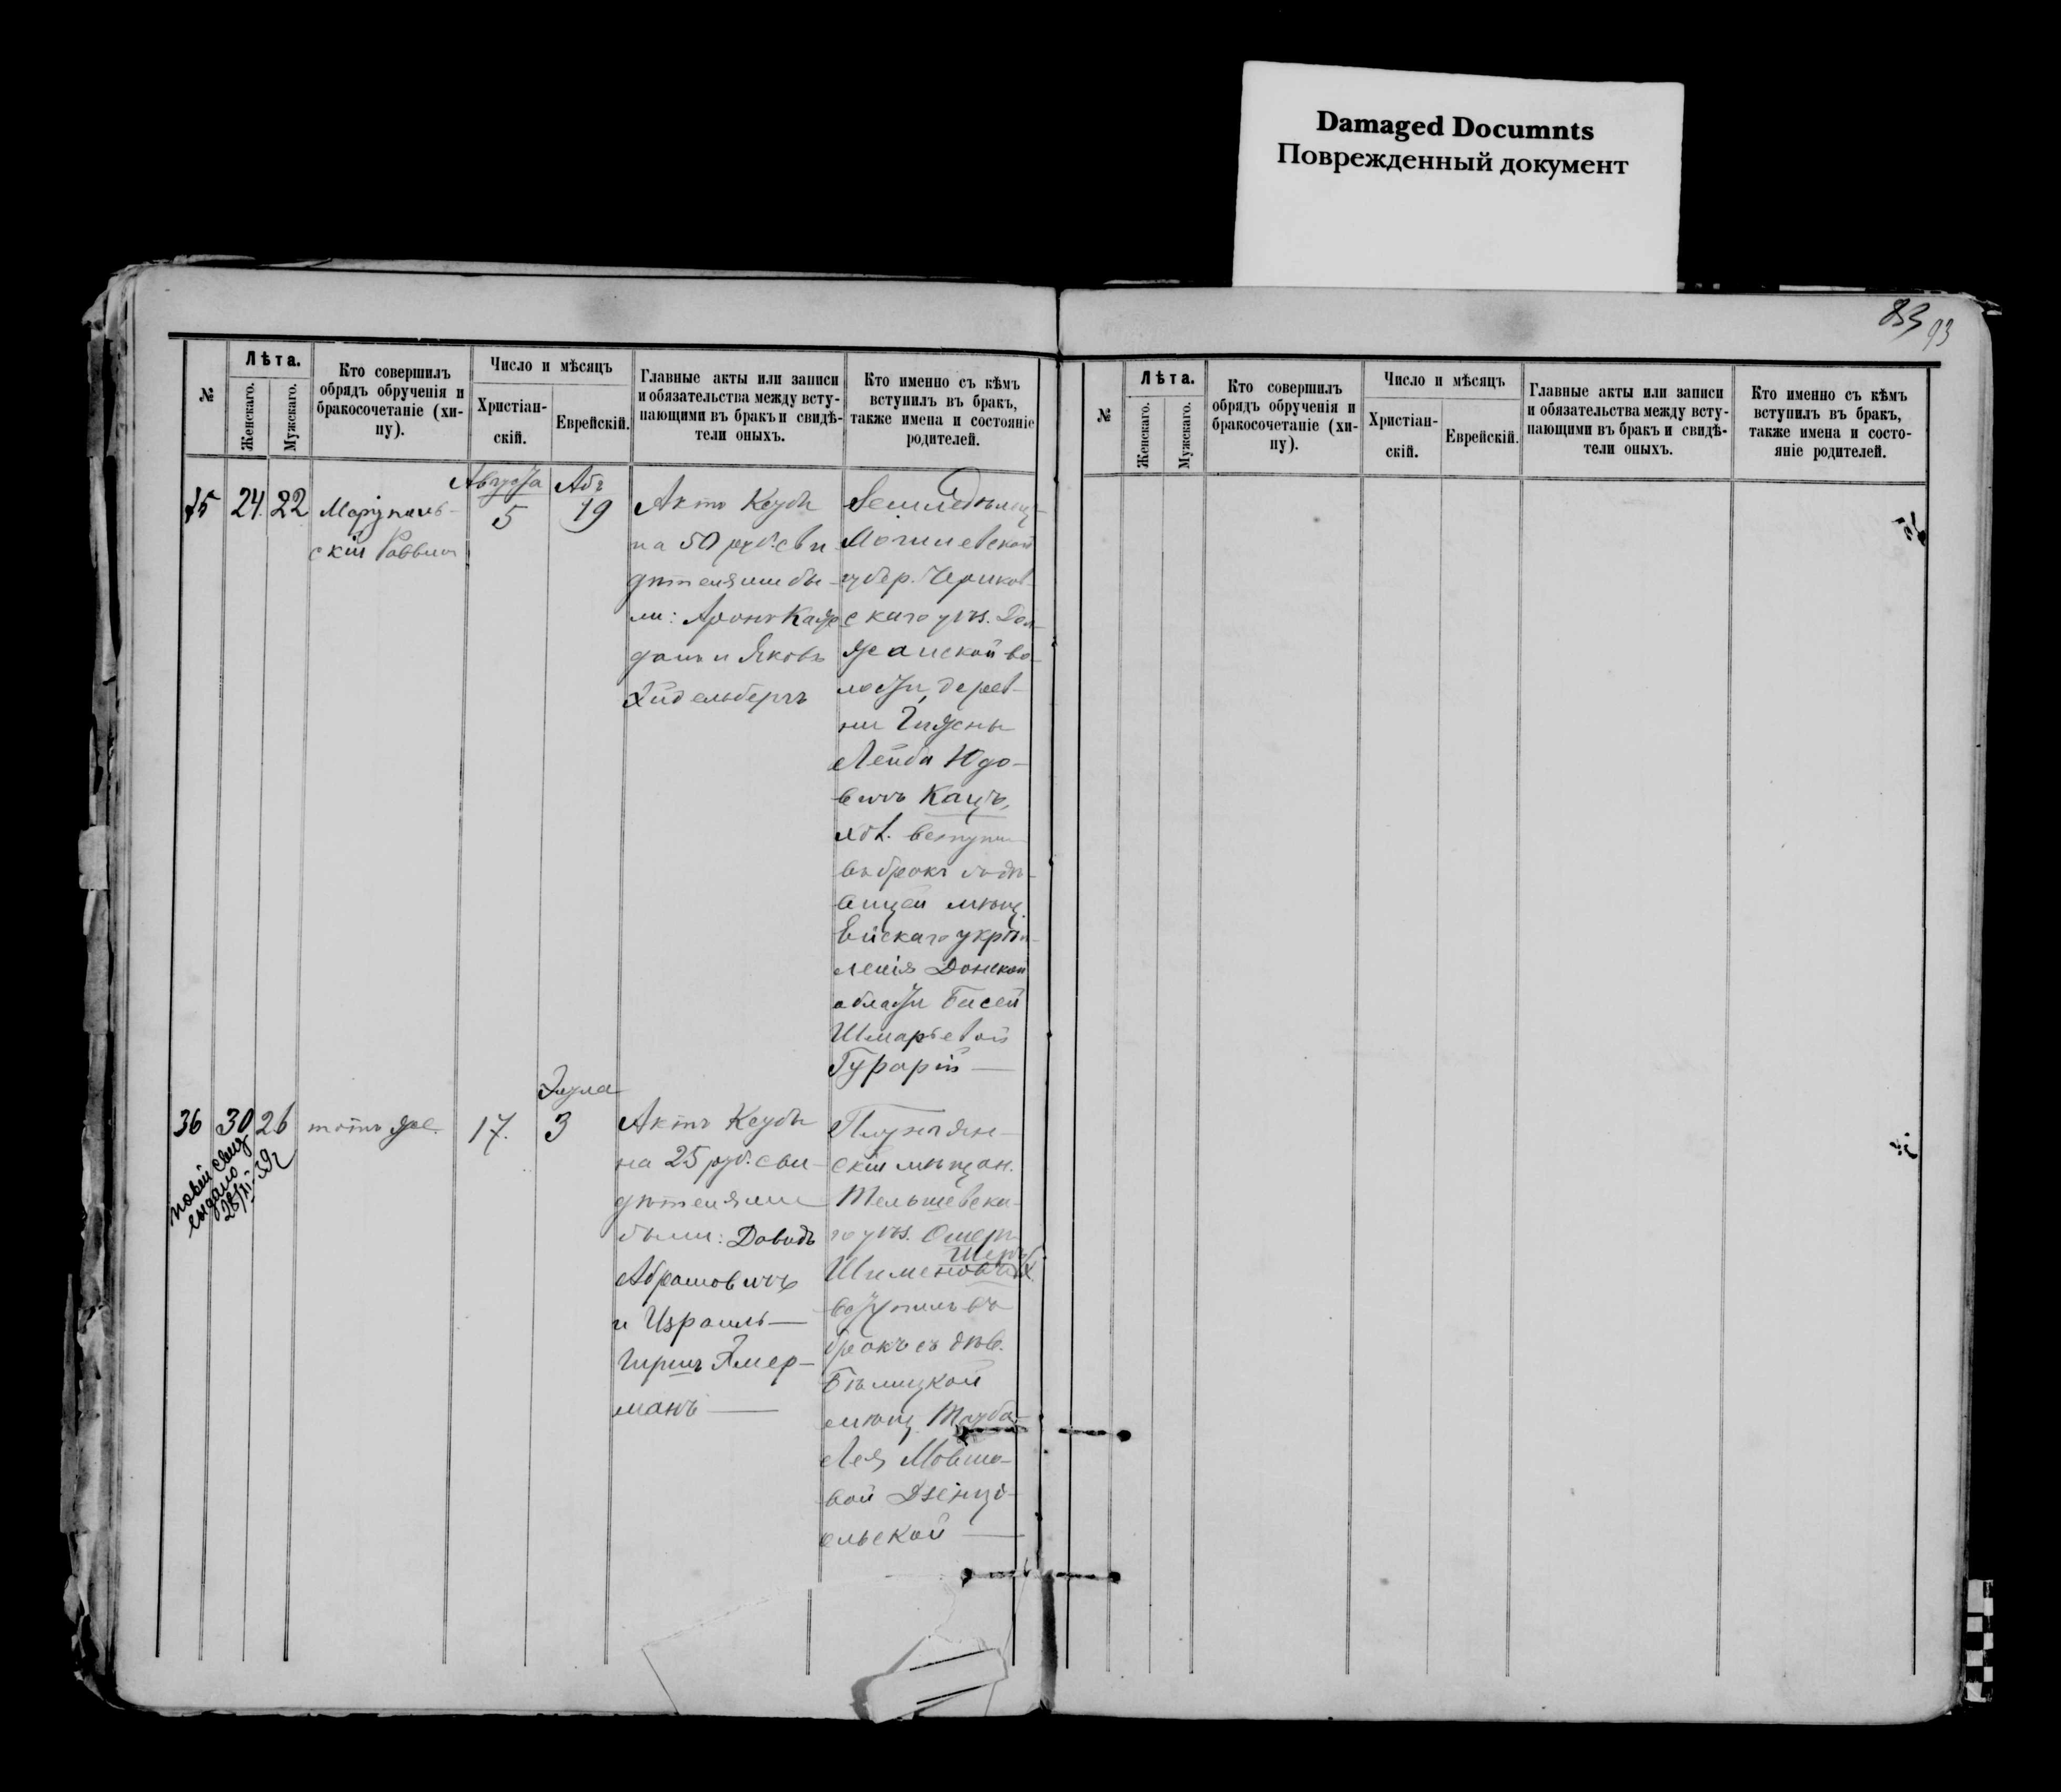 Damaged Documnts
Поврежденный документ
83 93
№
Лѣта.
Женскаго.
Мужскаго.
Кто совершилъ
обрядъ обрученія и
бракосочетаніе (хи-
пу).
Число и мѣсяцъ
Христіан-
скій.
Еврейскій.
Главные акты или записи
и обязательства между всту-
пающими въ бракъ и свидѣ-
тели оныхъ.
Кто именно съ кѣмъ
вступилъ въ бракъ,
также имена и состояніе
родителей.
35 24 22
Маріуполь-
скій Раввинъ
Августа
5
Абъ
19
Актъ Кеубы
на 50 руб. сви
дѣтелями бы-
ли: Аронъ
и Яковъ
Эйдельбергъ
Земледѣлецъ
Могилевской
губер. Чериков-
скаго уѣз. Дол-
жанской во-
лости, дерев-
ни
Лейба Юдо-
вичъ Кацъ,
вступи
въ бракъ съ дѣ-
вицей мѣщ.
Ейскаго укрѣп-
ленія Донской
области Басей
Шмарьевой
Гурарій
36 30 26
тотъ же
17.
Элула
3
выдано
28/II 39г
Актъ Кеубы
на 25 руб. сви-
дѣтелями
были: Давидъ
Абрамовичъ
и Израиль-
Гиршъ Эмер-
манъ
скій мѣщан.
Тельшевска-
го уѣз. Ошеръ
Шименов
вступилъ въ
бракъ съ дѣв.
Бѣлицкой
мѣщ. Тауба-
Лея Мовшо-
вой Дзенци-
ольской
№
Лѣта.
Женскаго.
Мужскаго.
Кто совершилъ
обрядъ обрученія и
бракосочетаніе (хи-
пу).
Число и мѣсяцъ
Христіан-
скій.
Еврейскій.
Главные акты или записи
и обязательства между всту-
пающими въ бракъ и свидѣ-
тели оныхъ.
Кто именно съ кѣмъ
вступилъ въ бракъ,
также имена и состо-
яніе родителей.